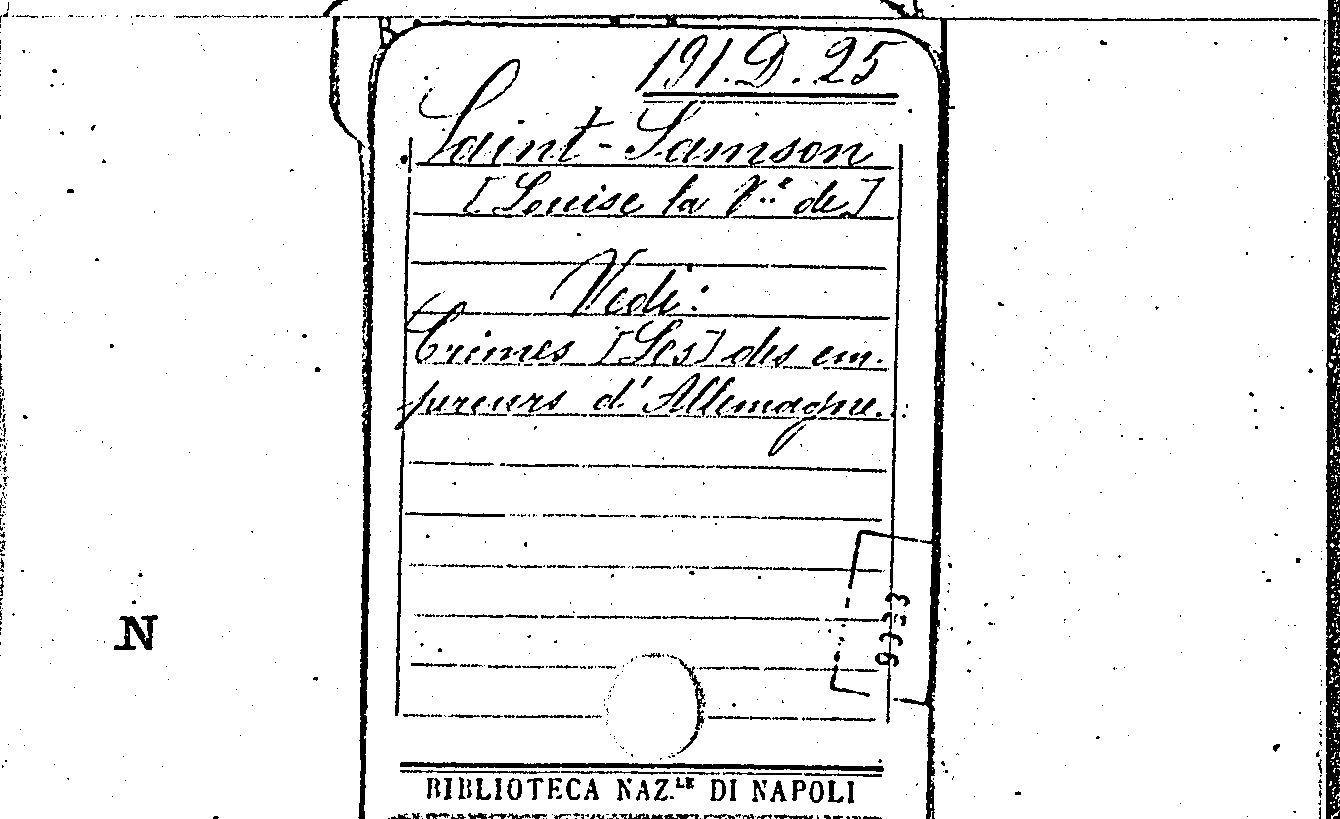 191.D.25
Saint-Samson
[Louise la V.e de]
Vedi:
Crimes [Les] des em-
pereurs d'Allemagne.
N
BIBLIOTECA NAZ.LE DI NAPOLI